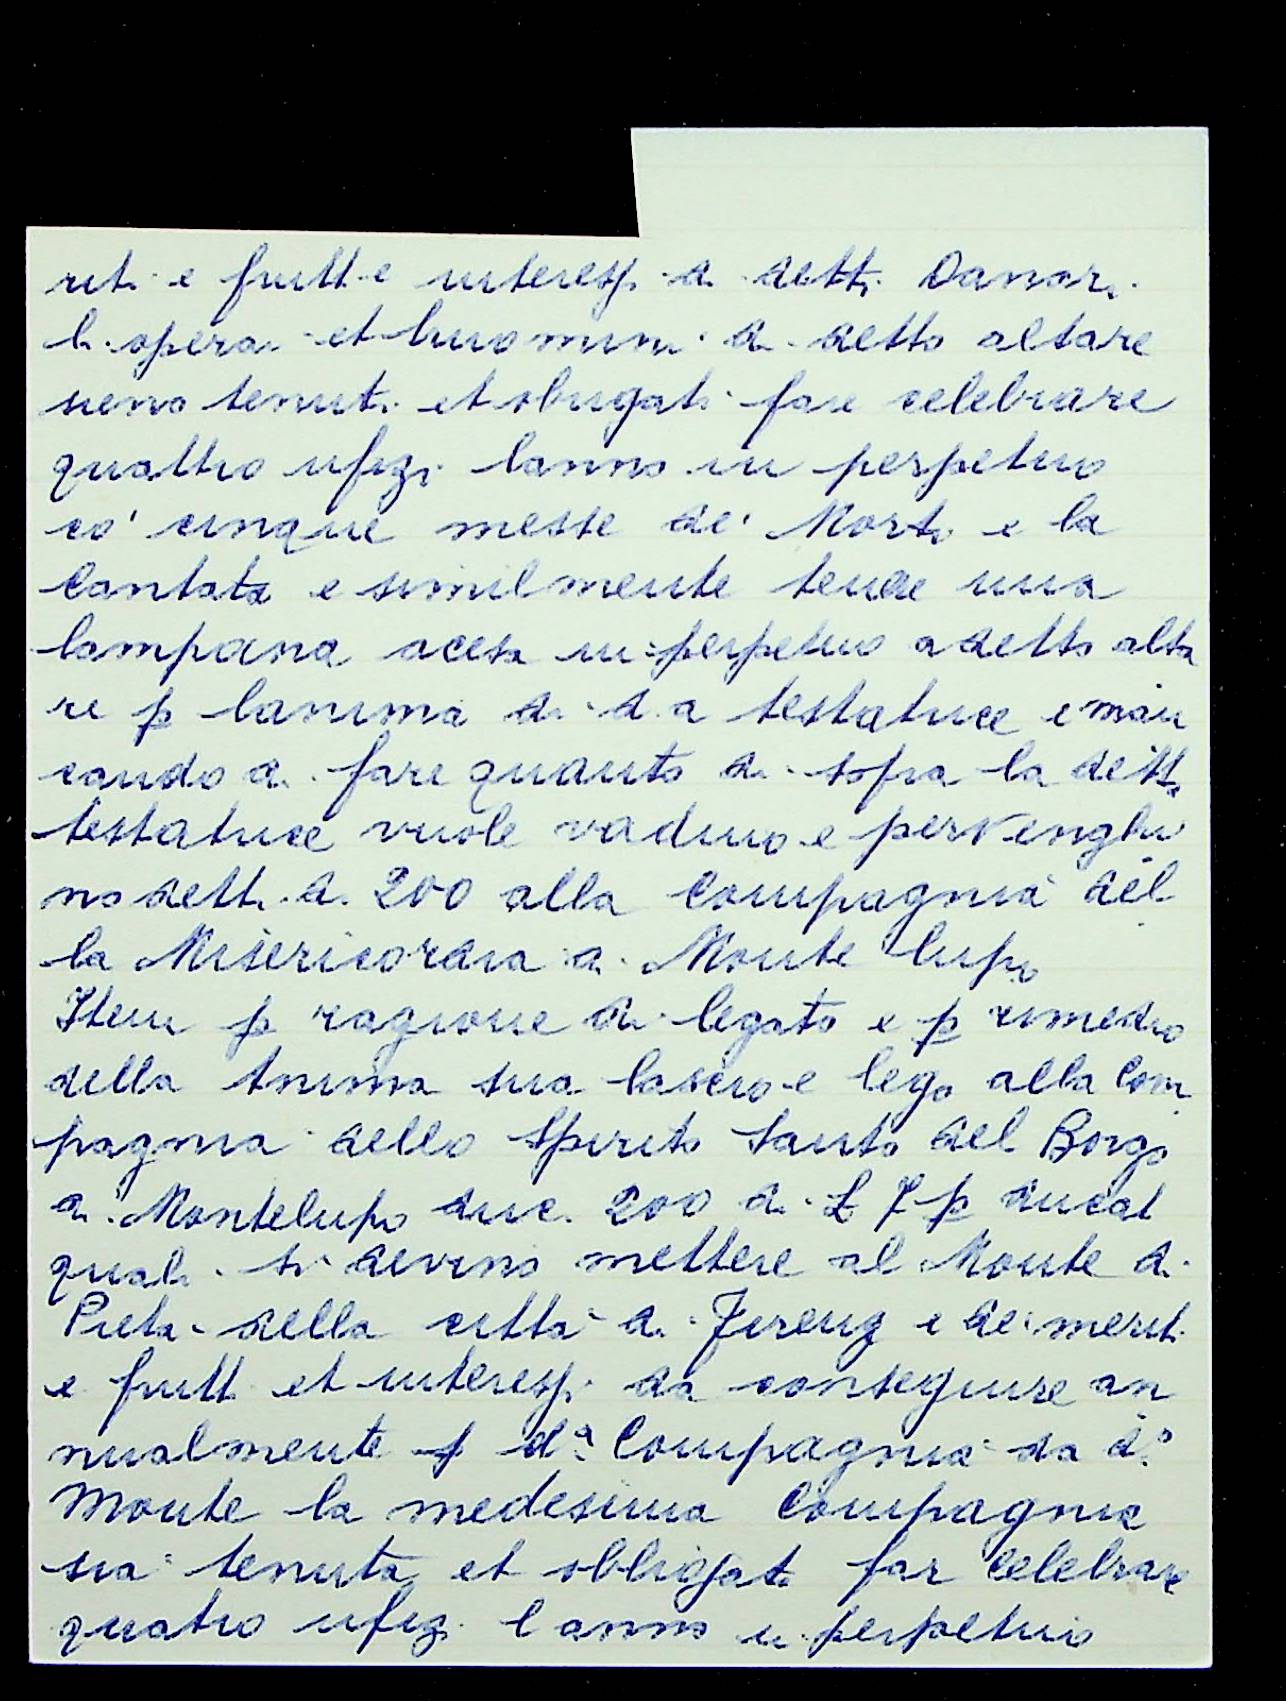 riti e frutti e interessi di detti Danari
li operai et huomini di detto altare
sieno tenuti et obrigati fare celebrare
quattro ufizi lanno in perpetuo
co' cinque messe de' Morti e la
Cantata e similmente tenere una
lampana acesa in perpetuo a detto alta
re p lanima di d.a testatrice e man
cando di fare quanto di sopra la detta
testatrice vuole vadino e pervenghi
no detti d. 200 alla Compagnia del
la Misericordia di Monte lupo
Item p ragione di legato e p rimedio
della Anima sua lascio e lego alla Com
pagnia dello Spirito Santo del Borgo
di Montelupo duc. 200 di £ 7 p ducat
quali si devino mettere al Monte di
Pieta della citta di Firenz e de' meriti
e frutti et interessi da conseguire an
nualmente p d.a Compagnia da d.o
Monte la medesima Compagnia
sia tenuta et obbligata far celebrare
quatro ufizi l anno in perpetuo